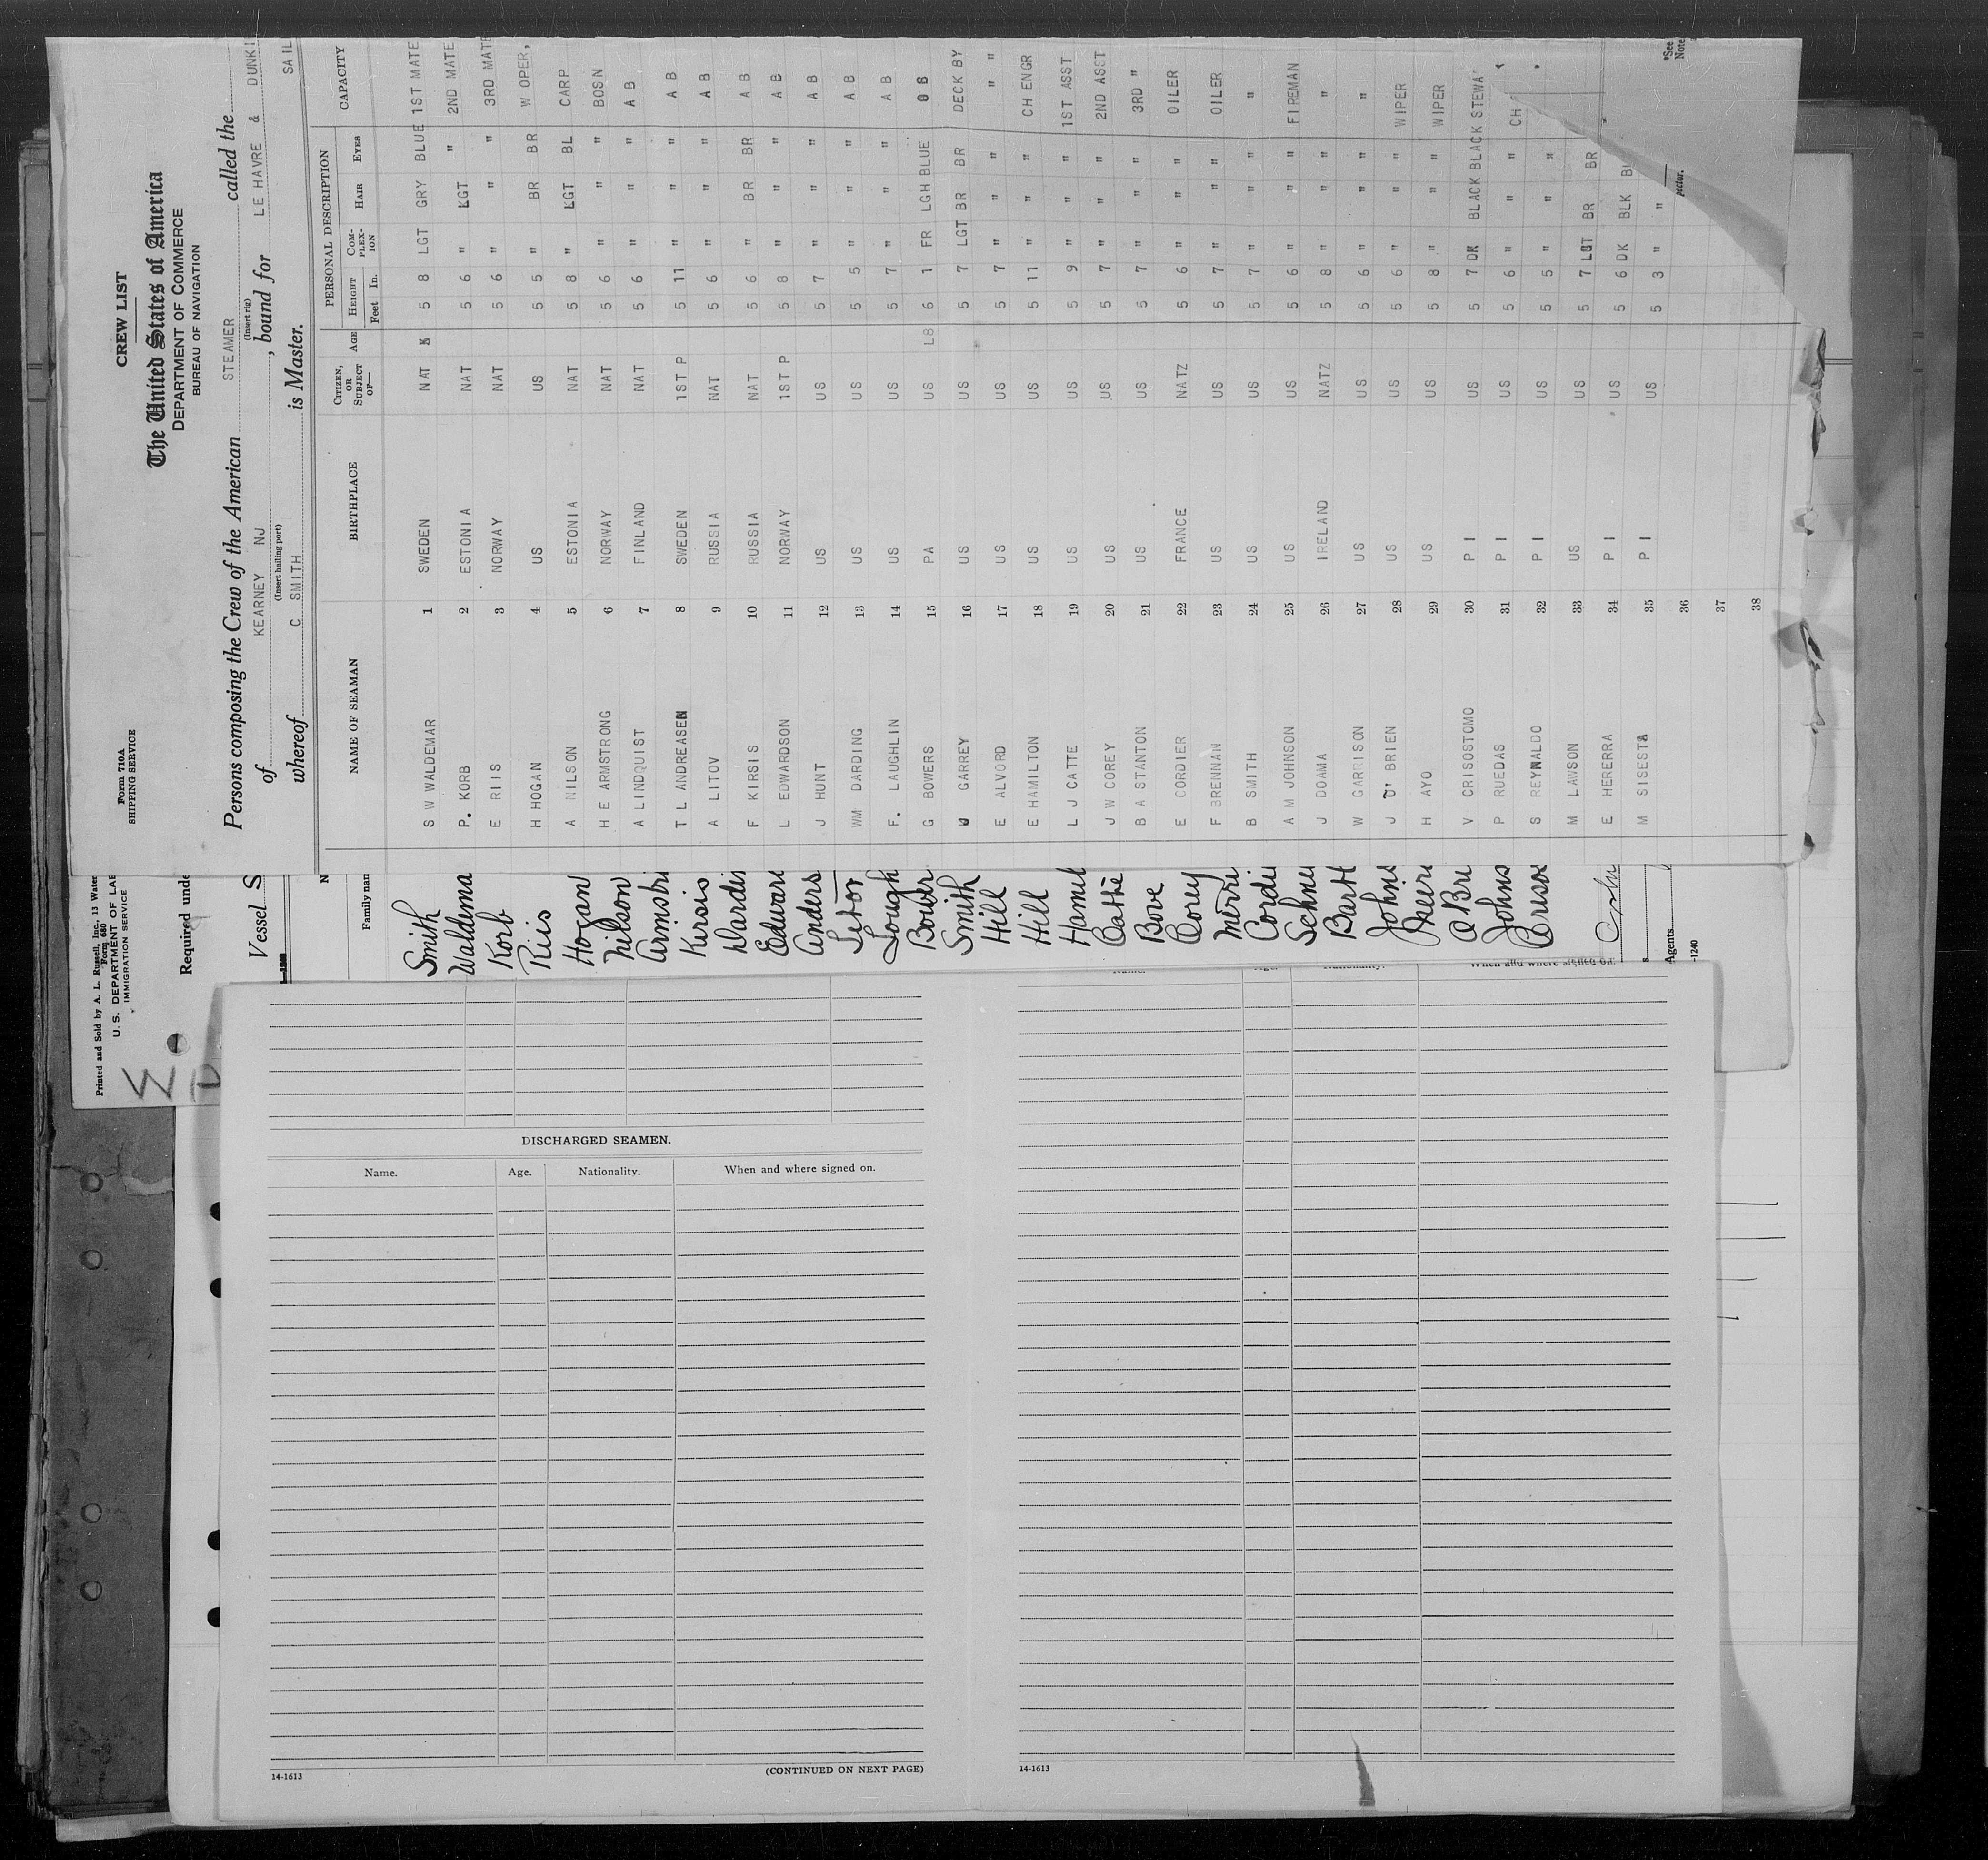 Form 710A
SHIPPING SERVICE
CREW LIST
The United States of America
DEPARTMENT OF COMMERCE
BUREAU OF NAVIGATION
Persons composing the Crew of the American STEAMER called the
(Insert rig)
of KEARNEY NJ, bound for LE HAVRE & DUNKI
(Insert hailing port)
whereof C SMITH is Master. SAIL
NAME OF SEAMAN BIRTHPLACE CITIZEN, OR SUBJECT OF— AGE PERSONAL DESCRIPTION CAPACITY
HEIGHT Feet In. COMPLEXION HAIR EYES
S W WALDEMAR 1 SWEDEN NAT 5 8 LGT GRY BLUE 1ST MATE
P. KORB 2 ESTONIA NAT 5 6 " LGT " 2ND MATE
E RIIS 3 NORWAY NAT 5 6 " " " 3RD MATE
H HOGAN 4 US US 5 5 " BR BR W OPER,
A NILSON 5 ESTONIA NAT 5 8 " LGT BL CARP
H E ARMSTRONG 6 NORWAY NAT 5 6 " " " BOSN
A LINDQUIST 7 FINLAND NAT 5 6 " " " A B
T L ANDREASEN 8 SWEDEN 1ST P 5 11 " " " A B
A LITOV 9 RUSSIA NAT 5 6 " " " A B
F KIRSIS 10 RUSSIA NAT 5 6 " BR BR A B
L EDWARDSON 11 NORWAY 1ST P 5 8 " " " A B
J HUNT 12 US US 5 7 " " " A B
WM DARDING 13 US US 5 5 " " " A B
F. LAUGHLIN 14 US US 5 7 " " " A B
G BOWERS 15 PA US L8 6 1 FR LGH BLUE B
GARREY 16 US US 5 7 LGT BR BR DECK BY
E ALVORD 17 US US 5 7 " " " " "
E HAMILTON 18 US US 5 11 " " " CH ENGR
L J CATTE 19 US US 5 9 " " " 1ST ASST
J W COREY 20 US US 5 7 " " " 2ND ASST
B A STANTON 21 US US 5 7 " " " 3RD "
E CORDIER 22 FRANCE NATZ 5 6 " " " OILER
F BRENNAN 23 US US 5 7 " " " OILER
B SMITH 24 US US 5 7 " " " "
A M JOHNSON 25 US US 5 6 " " " FIREMAN
J DOAMA 26 IRELAND NATZ 5 8 " " " "
W GARRISON 27 US US 5 6 " " " "
J O' BRIEN 28 US US 5 6 " " " WIPER
H AYO 29 US US 5 8 " " " WIPER
V CRISOSTOMO 30 P I US 5 7 DK BLACK BLACK STEWA
P RUEDAS 31 P I US 5 6 " " " CH
S REYNALDO 32 P I US 5 5 " " "
M LAWSON 33 US US 5 7 LGT BR BR
E HERERRA 34 P I US 5 6 DK BLK
M SISESTA 35 P I US 5 3 " "
36
37
38
*See
Note
pector.
Printed and Sold by A. L. Russell, Inc., 13 Water
Form 680
U.S. DEPARTMENT OF LAB
IMMIGRATION SERVICE
Required unde
Vessel S
Family nam
Smith
Waldema
Korb
Riis
Hogan
Nilson
Armstr
Kirsis
Dardin
Edward
Anders
Litov
Lough
Bower
Smith
Hill
Hill
Hamil
Catte
Bove
Corey
Merri
Cordi
Schne
Bartt
Johns
O Bri
Johns
Crisos
Agents
-1240
Name. Age. Nationality. When and where signed on.
DISCHARGED SEAMEN.
Name. Age. Nationality. When and where signed on.
14-1613
(CONTINUED ON NEXT PAGE)
14-1613